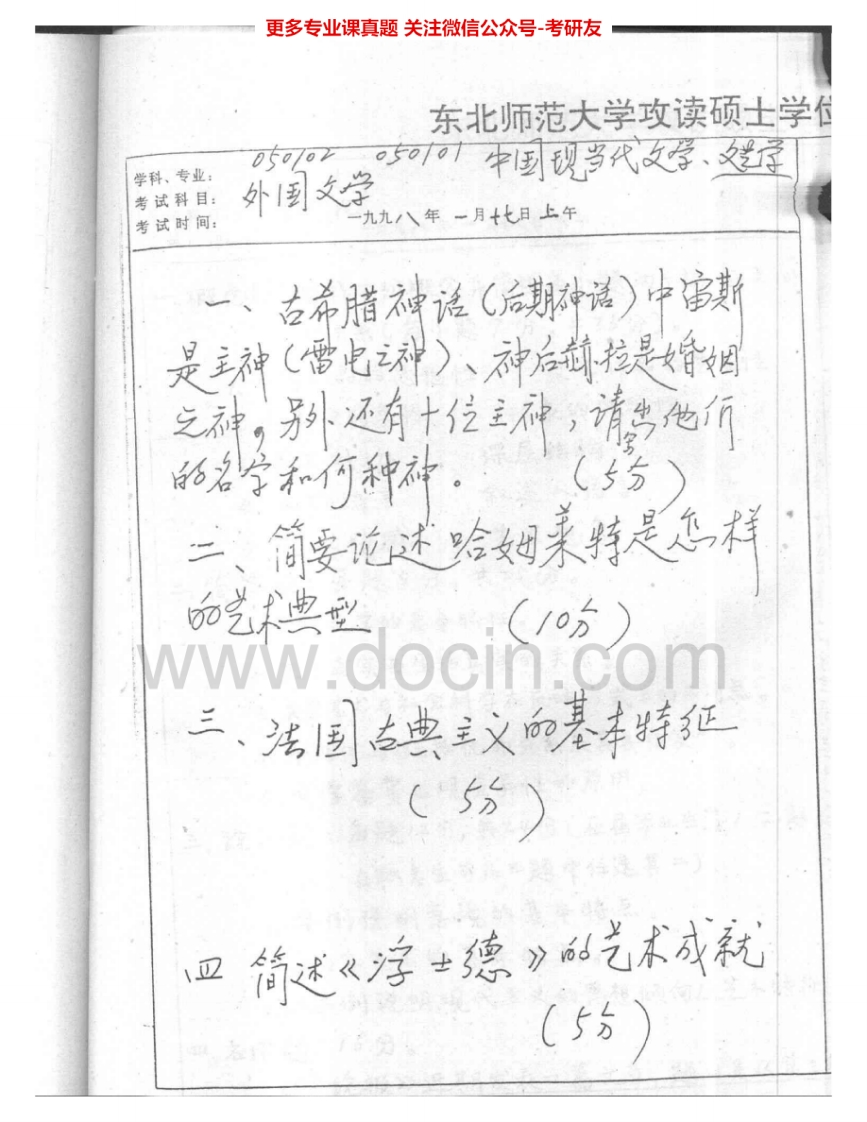 更多专业课真题 关注微信公众号-考研友
东北师范大学攻读硕士学位
学科、专业： 050102 050101 中国现当代文学、文艺学
考试科目： 外国文学
考试时间： 一九九八年一月十七日上午
一、古希腊神话（后期神话）中宙斯
是主神（雷电之神）、神后赫拉是婚姻
之神。另外还有十位主神，请写出他们
的名字和何种神。 （5分）
二、简要论述哈姆莱特是怎样
的艺术典型 （10分）
www.docin.com
三、法国古典主义的基本特征
（5分）
四 简述《浮士德》的艺术成就
（5分）